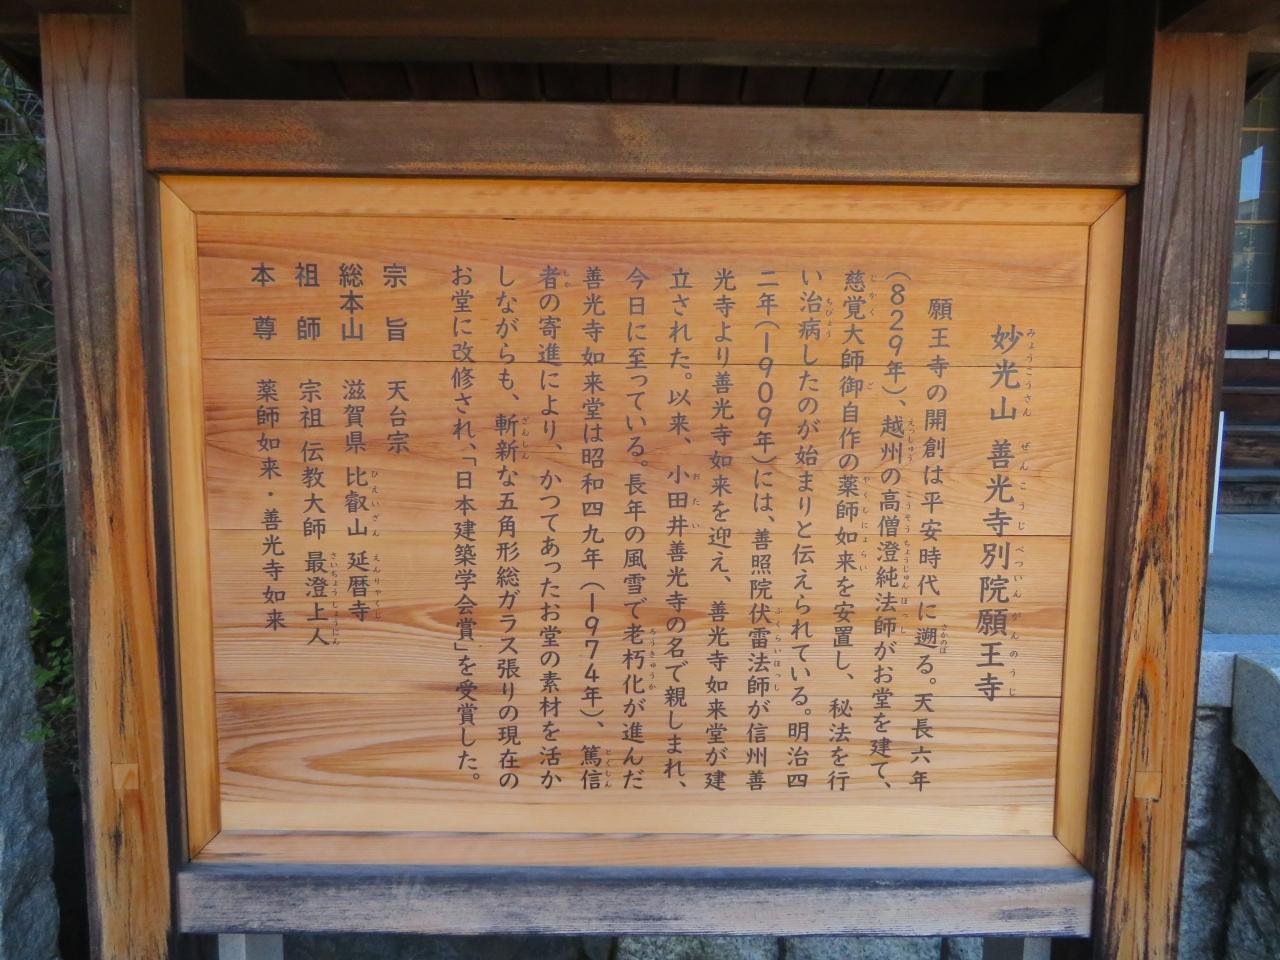 妙光山 善光寺別院願王寺
願王寺の開創は平安時代に遡る。天長六年
(829年)、越州の高僧澄純法師がお堂を建て、
慈覚大師御自作の薬師如来を安置し、秘法を行
い治病したのが始まりと伝えられている。明治四
二年(1909年)には、善照院伏雷法師が信州善
光寺より善光寺如来を迎え、善光寺如来堂が建
立された。以来、小田井善光寺の名で親しまれ、
今日に至っている。長年の風雪で老朽化が進んだ
善光寺如来堂は昭和四九年(1974年)、篤信
者の寄進により、かつてあったお堂の素材を活か
しながらも、斬新な五角形総ガラス張りの現在の
お堂に改修され、「日本建築学会賞」を受賞した。
宗旨 天台宗
総本山 滋賀県 比叡山 延暦寺
祖師 宗祖 伝教大師 最澄上人
本尊 薬師如来・善光寺如来